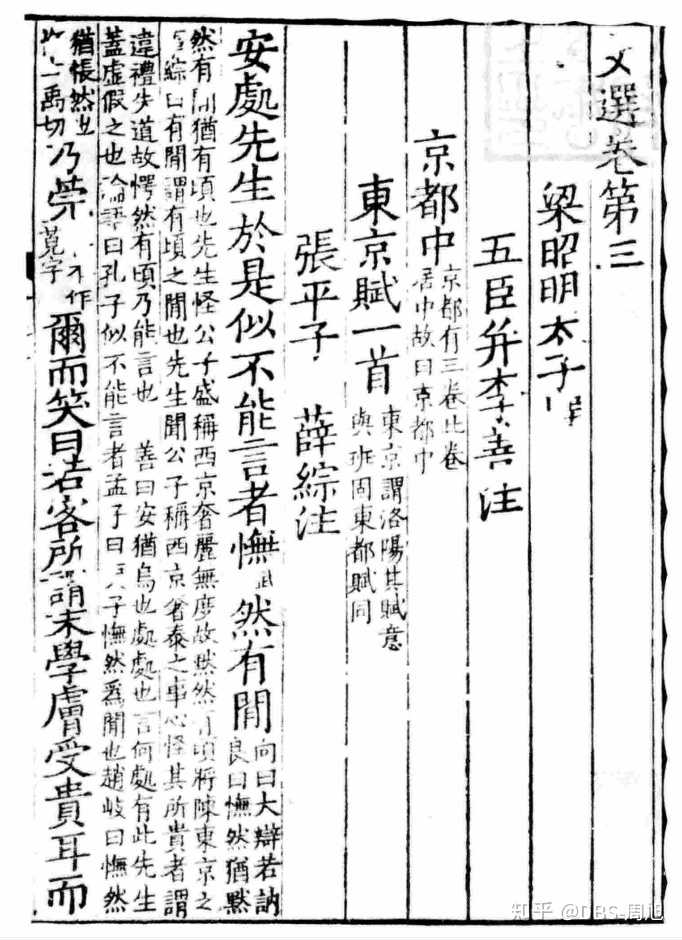 文選卷第三
梁昭明太子
五臣并李善注
京都中
京都有三卷此卷
居中故曰京都中
東京賦一首
東京謂洛陽其賦意
與班固東都賦同
張平子 薛綜注
安處先生於是似不能言者憮 然有閒
向曰大辯若訥
良曰憮然猶黙
然有閒猶有頃也先生怪公子盛稱西京奢麗無度故黙然有頃將陳東京之
綜曰有閒謂有頃之閒也先生聞公子稱西京奢泰之事心怪其所貴者謂
違禮失道故愕然有頃乃能言也 善曰安猶烏也處處也言何處有此先生
蓋虛假之也論語曰孔子似不能言者孟子曰子憮然爲閒也趙岐曰憮然
猶悵然也
禹切
乃
作
莧字
爾而笑曰若客所謂末學膚受貴耳而
知乎 @DBS-周旭